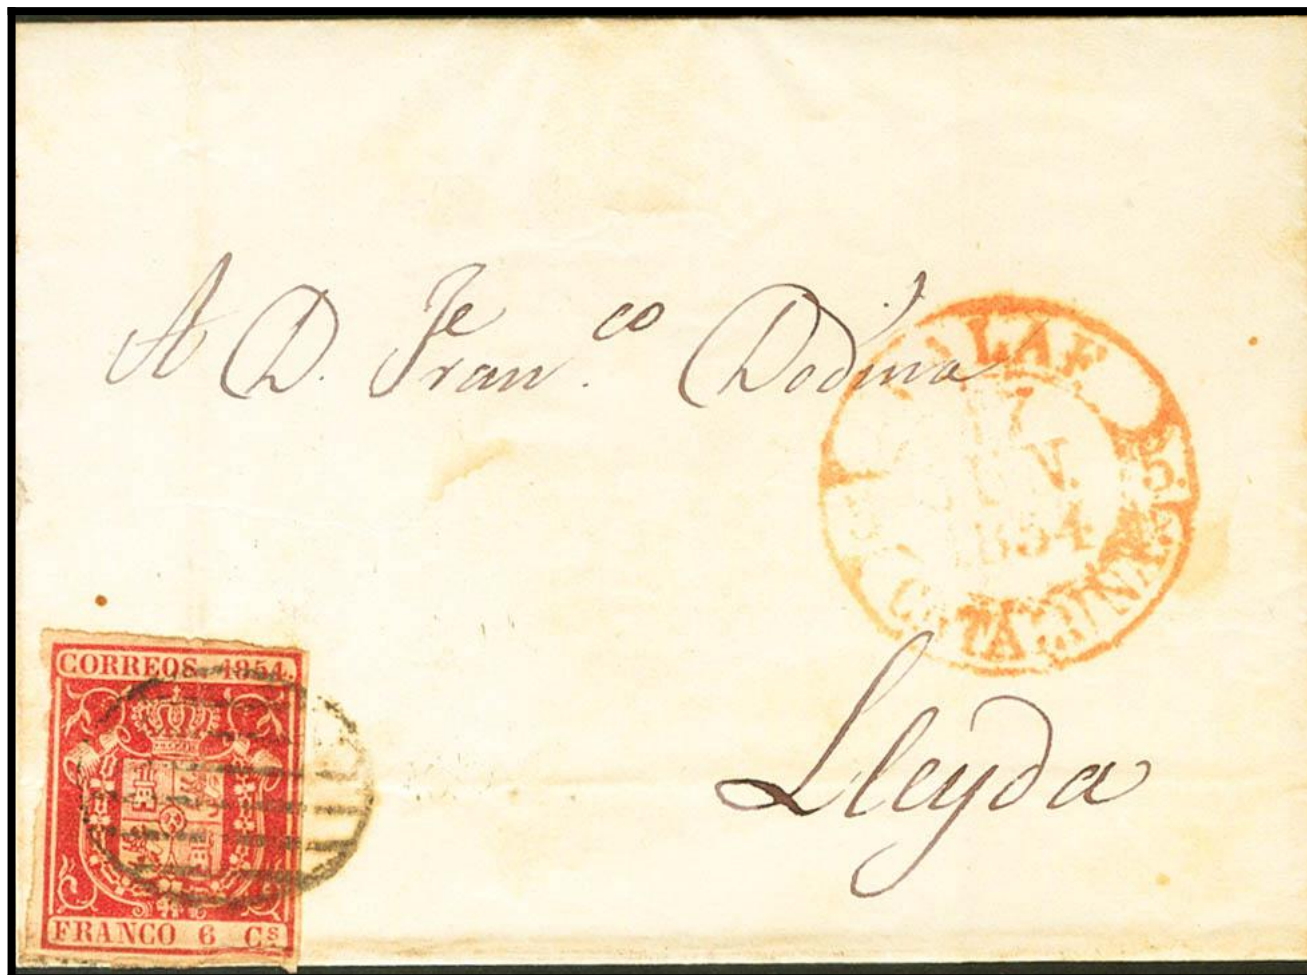 A D. Fran.co Dodina
CALAF
17
1854
5.
CATALUÑA
Lleyda
CORREOS 1854.
FRANCO 6 Cs